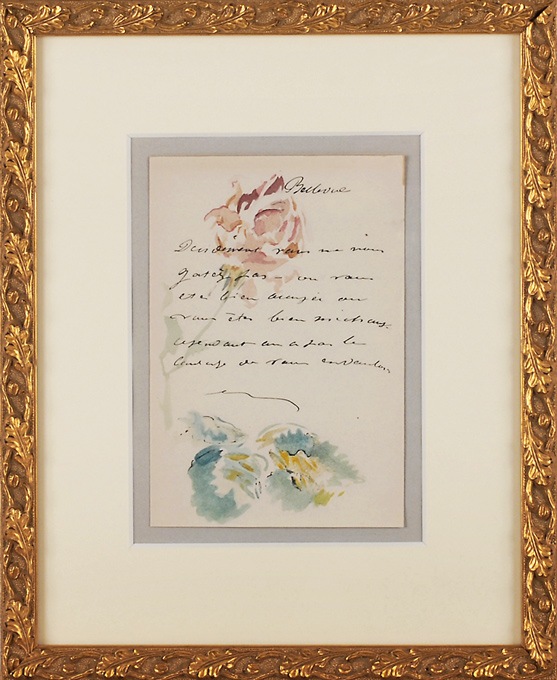 Bellevue
Décidément vous ne nous
gatez pas – ou vous
etes bien occupée ou
vous êtes bien méchante
cependant on a pas le
courage de vous en vouloir